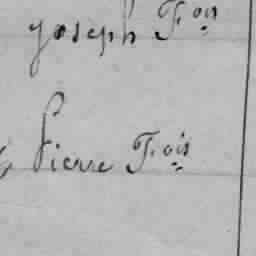 Joseph F.ois
Pierre F.ois